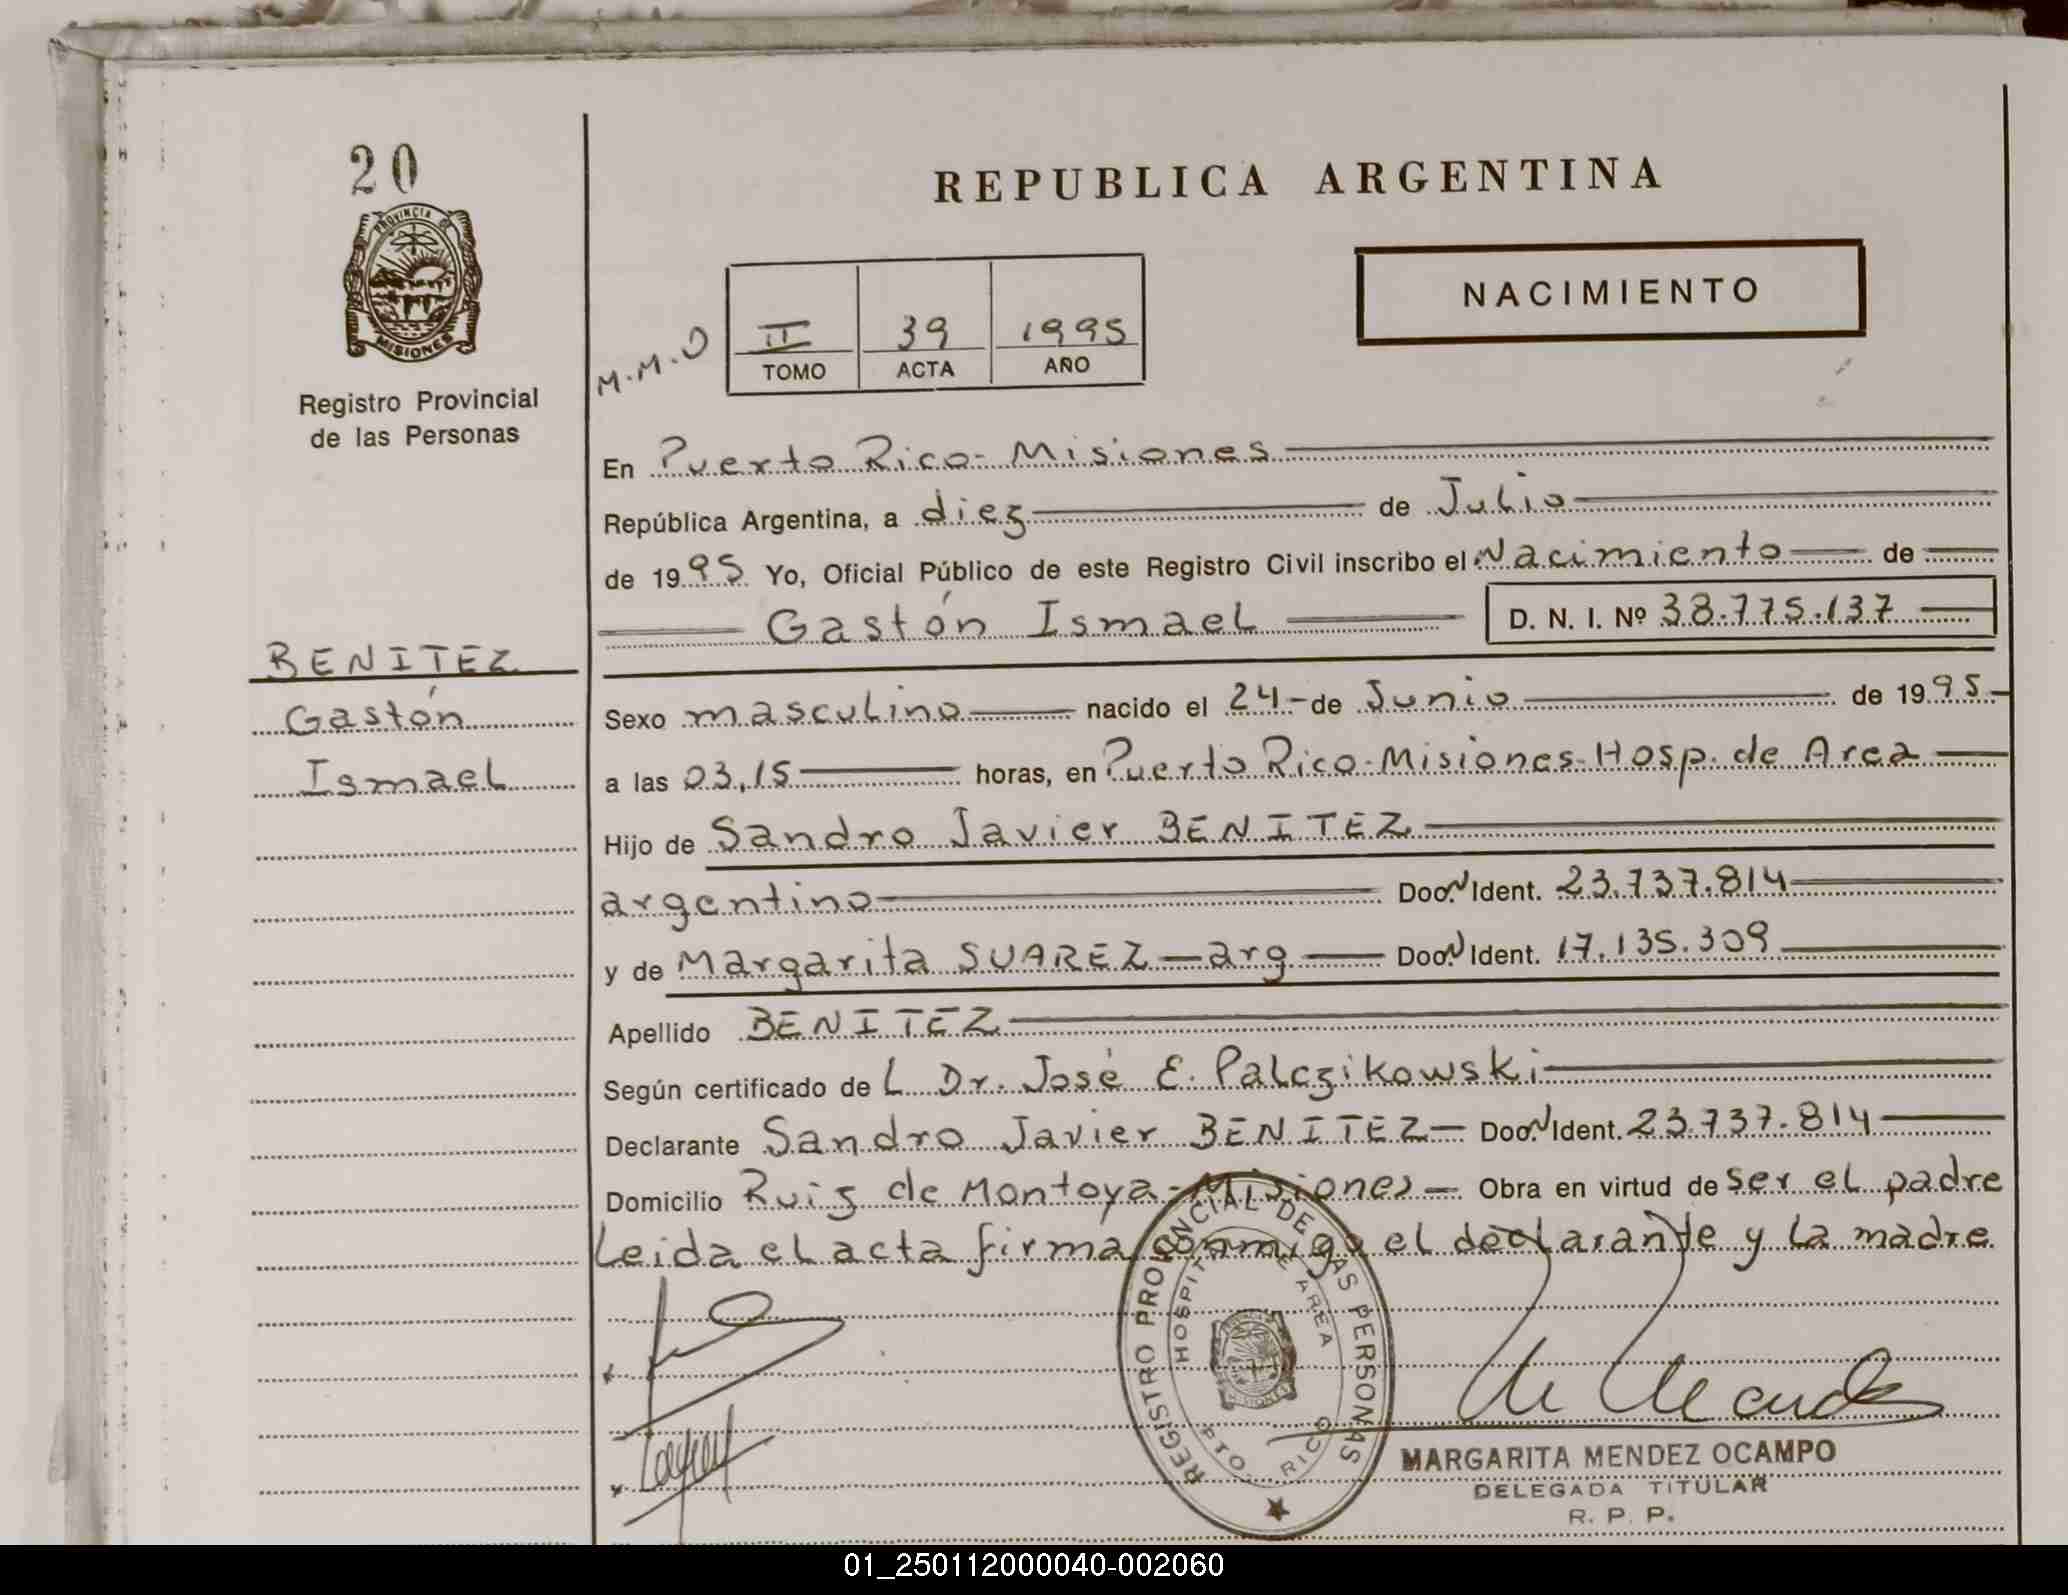 20
PROVINCIA DE
MISIONES
Registro Provincial
de las Personas
BENITEZ
Gastón
Ismael
REPUBLICA ARGENTINA
NACIMIENTO
M.M.O
II 39 1995
TOMO ACTA AÑO
En Puerto Rico - Misiones
República Argentina, a diez de Julio
de 1995 Yo, Oficial Público de este Registro Civil inscribo el Nacimiento de
Gastón Ismael D. N. I. Nº 38.775.137
Sexo masculino nacido el 24 - de Junio de 1995
a las 03,15 horas, en Puerto Rico - Misiones - Hosp. de Area
Hijo de Sandro Javier BENITEZ
argentino Doc. N Ident. 23.737.814
y de Margarita SUAREZ — arg Doc. N Ident. 17.135.309
Apellido BENITEZ
Según certificado de L Dr. José E. Palczikowski
Declarante Sandro Javier BENITEZ — Doc. N Ident. 23.737.814
Domicilio Ruiz de Montoya - Misiones — Obra en virtud de ser el padre
Leida el acta firma conmigo el declarante y la madre
REGISTRO PROVINCIAL DE LAS PERSONAS
HOSPITAL DE AREA
PTO. RICO
MARGARITA MENDEZ OCAMPO
DELEGADA TITULAR
R. P. P.
01_250112000040-002060